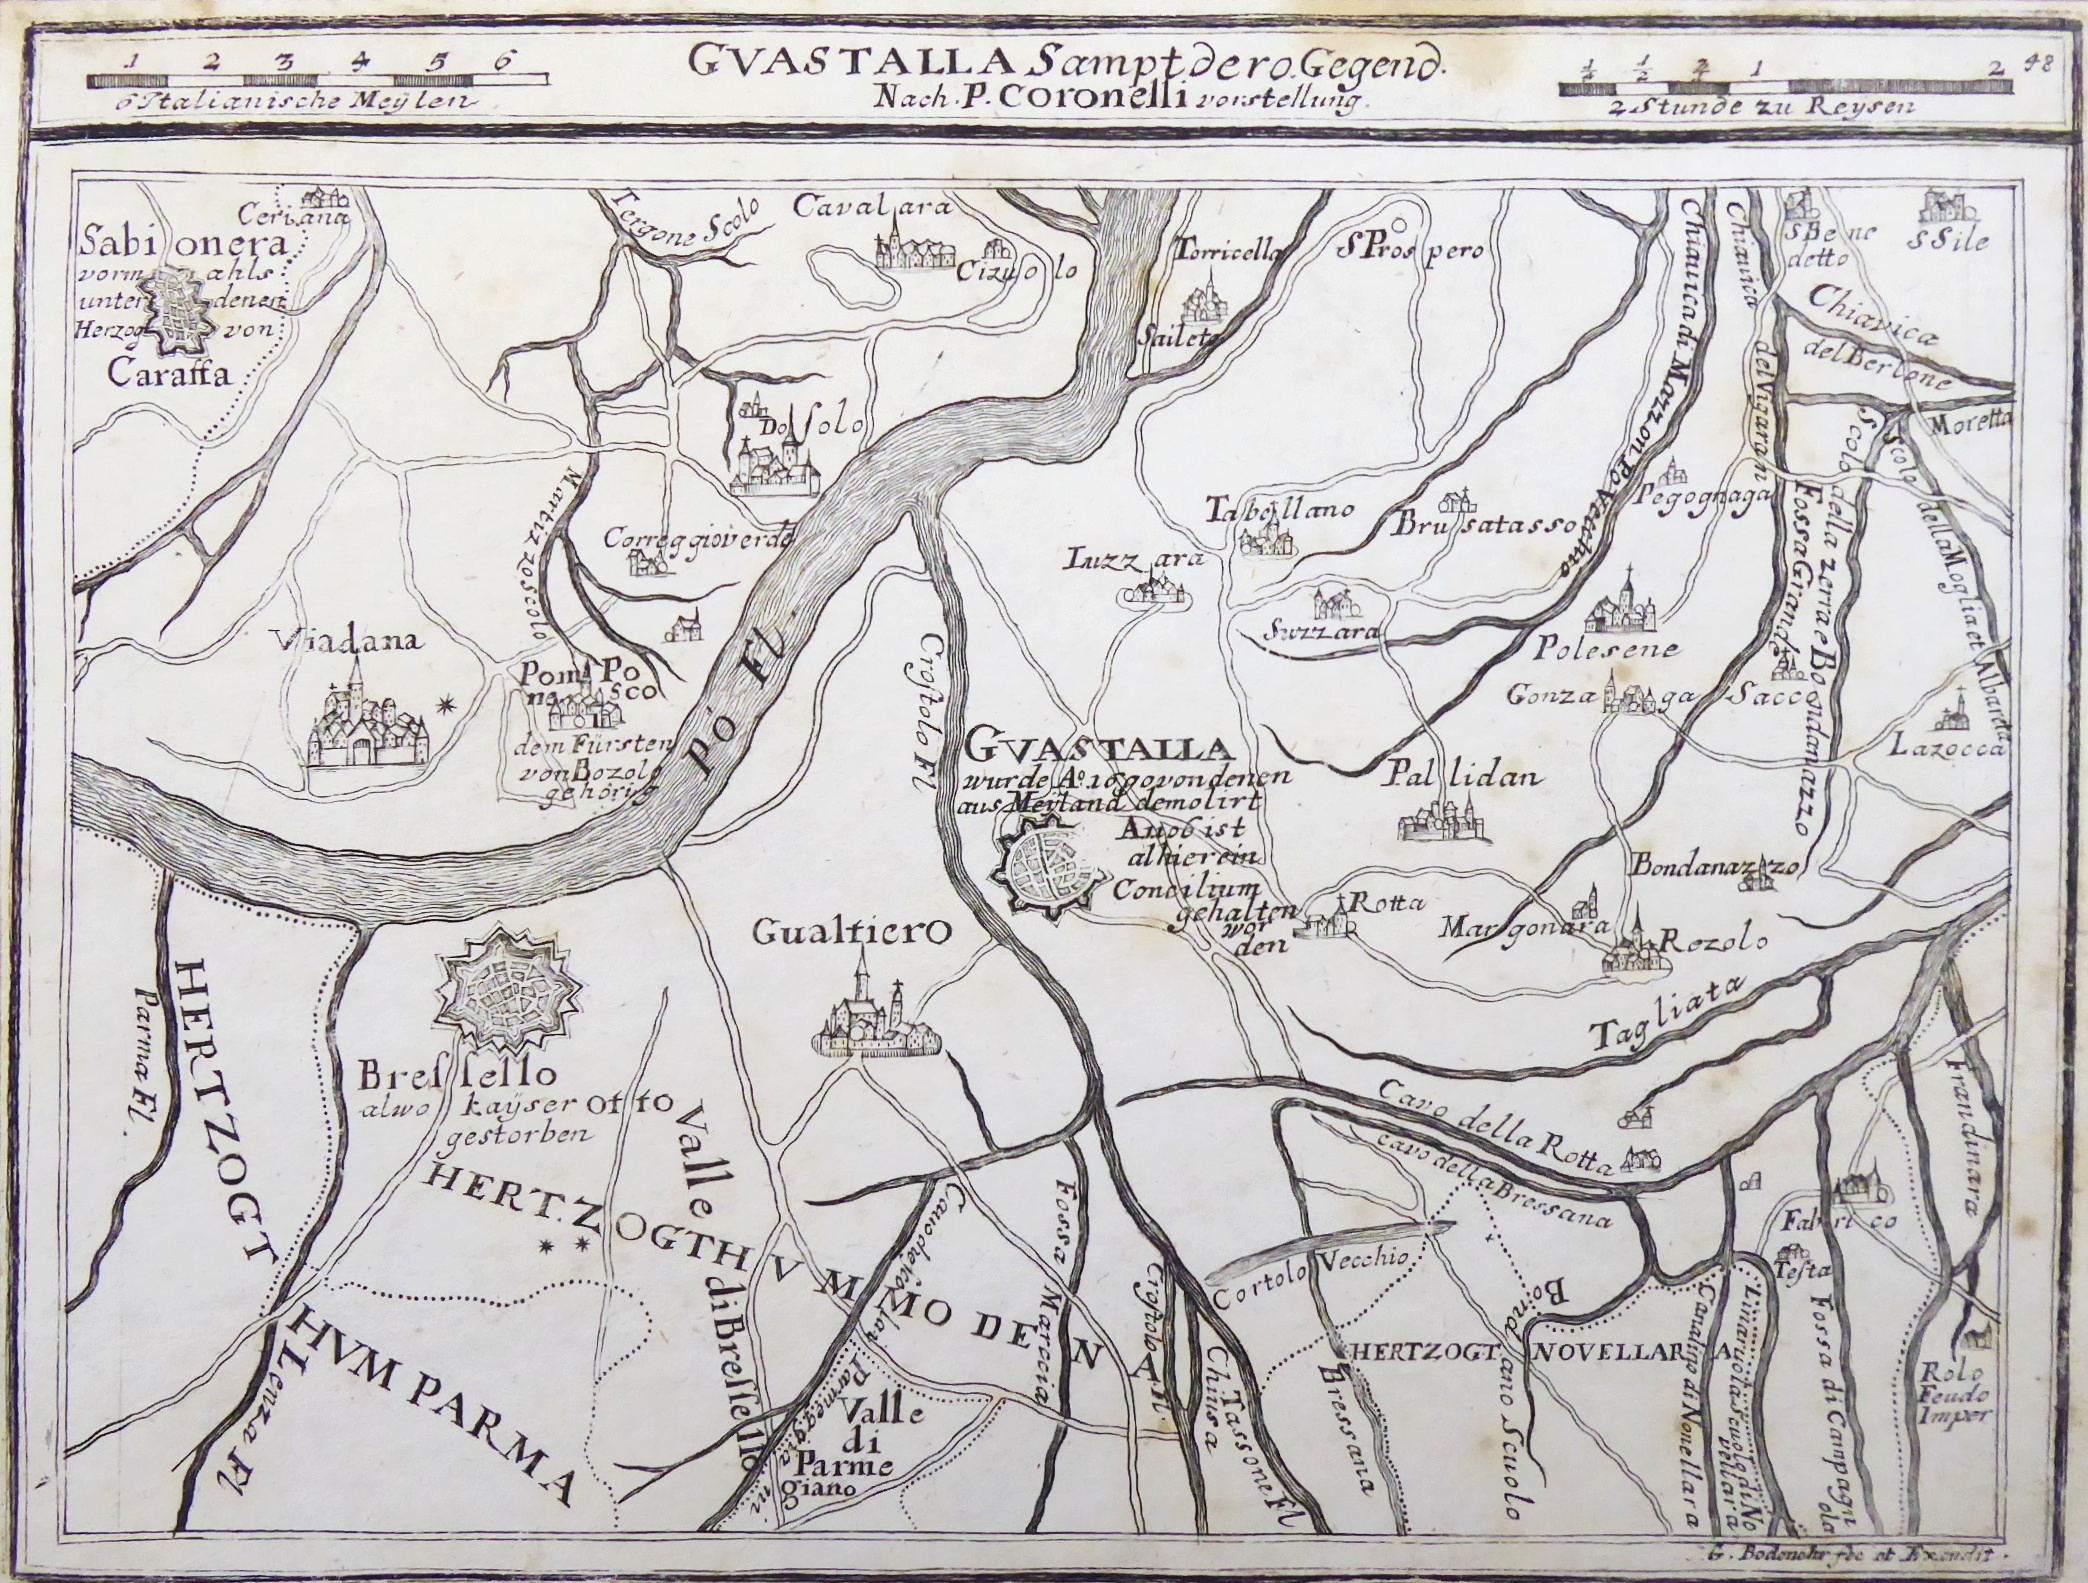 1 2 3 4 5 6
6 Italianische Meÿlen
GVASTALLA Sampt dero Gegend.
Nach. P. Coronelli vorstellung.
1/4 1/2 3/4 1 2
2 Stunde zu Reysen
48
Ceriana
Sabionera
vormahls
unter denen
Herzog von
Caraffa
Tergone Scolo
Cavallara
Cizuolo
Torricella
Saileto
S Prospero
Chiavica di Mazzon Po Vecchio
Chiavica del Vigarani
S Bene
detto
S Sile
Chiavica
del Bertone
Moretta
Scolo della zerra e Bondanazzo
Scolo della Moglia et Albareta
Fossa Grande
Dosolo
Martizzo scolo
Correggioverde
Viadana
Pom Po
nesco
dem Fürsten
von Bozolo
gehörig
Po Fl.
Crostolo Fl
Luzzara
Tabellano
Brusatasso
Pegognaga
Suzzara
Polesene
Gonzaga
Sacco
Lazocca
GVASTALLA
wurde Aº. 1690 von denen
aus Meÿland demolirt
Ano6 ist
alhier ein
Concilium
gehalten
wor
den
Pallidan
Bondanazzo
Rotta
Margonara
Rezolo
Tagliata
Gualtiero
Bressello
alwo kaÿser otto
gestorben
Parma Fl.
HERTZOGT
HVM PARMA
Lenza Fl
HERTZOGTHVM MODENA
Valle di Bressello
Cavo della Rotta
cavo della Bressana
Fabrico
Testa
Cortolo Vecchio
Fossa Marocia
Crostolo Fl.
Chiusa
Tassone Fl
Bressana
HERTZOGT. NOVELLARA
Bondano Scuolo
Fossa di Campagnola
Rolo
Feudo
Imper
Valle
di
Parme
giano
G. Bodenehr fec et Excudit.